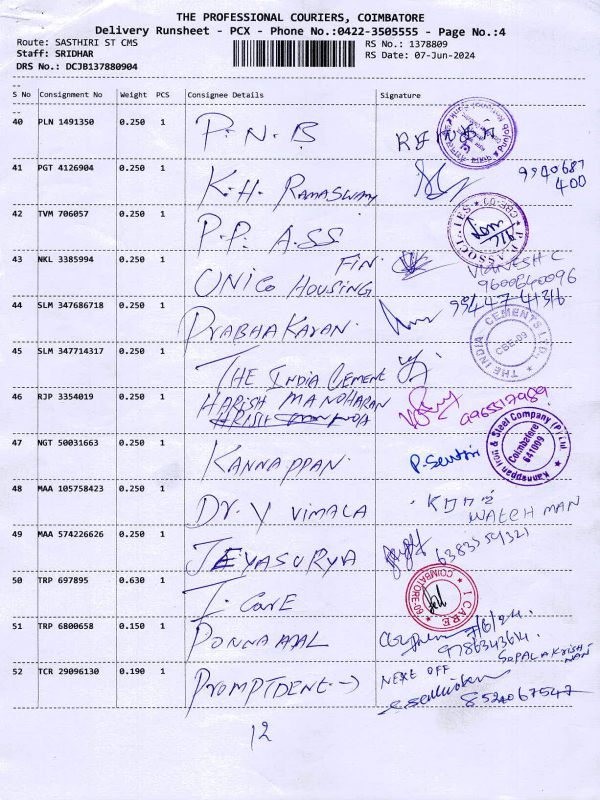 THE PROFESSIONAL COURIERS, COIMBATORE
Delivery Runsheet - PCX - Phone No.:0422-3505555 - Page No.:4
Route: SASTHIRI ST CMS RS No.: 1378809
Staff: SRIDHAR RS Date: 07-Jun-2024
DRS No.: DCJB137880904
S No Consignment No Weight PCS Consignee Details Signature
40 PLN 1491350 0.250 1 P.N.B
41 PGT 4126904 0.250 1 K.H. RAMASWAMY 9940687400
42 TVM 706057 0.250 1 P.P. ASS P.P. ASSOCIATES
43 NKL 3385994 0.250 1 UNICO HOUSING FIN. VIGNESH C 9600640096
44 SLM 347686718 0.250 1 PRABHAKARAN. 9944741316
45 SLM 347714317 0.250 1 THE INDIA CEMENT THE INDIA CEMENTS LTD., CBE-09
46 RJP 3354019 0.250 1 HARISH MANOHARAN 9965517989
47 NGT 50031663 0.250 1 KANNAPPAN. P. Senthil Kannappan Iron & Steel Company (P) Ltd Coimbatore 641009
48 MAA 105758423 0.250 1 Dr. V VIMALA WATCH MAN
49 MAA 574226626 0.250 1 JEYASURYA 6383554321
50 TRP 697895 0.630 1 I. CARE I CARE COIMBATORE
51 TRP 6800658 0.150 1 PONNAAAL 7/6/24. 9786343614.
52 TCR 29096130 0.190 1 PROMPTDENT. → NEXT OFF GOPALAKRISHNAN 8524067547
12